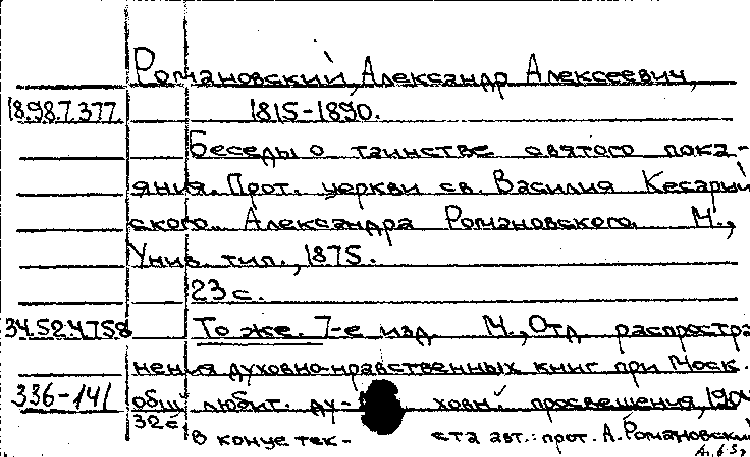 Романовский, Александр Алексеевич,
18.987.377. 1815-1890.
Беседы о таинстве святого пока-
яния. Прот. церкви св. Василия Кесарий
ского Александра Романовского. М.,
Унив. тип., 1875.
23 с.
34.52.4758 То же. 7-е изд. М., Отд. распростра
нения духовно-нравственных книг при Моск.
336-141 общ. любит. ду- ховн. просвещения,
32 с.
В конце тек- ста авт.: прот. А. Романовский